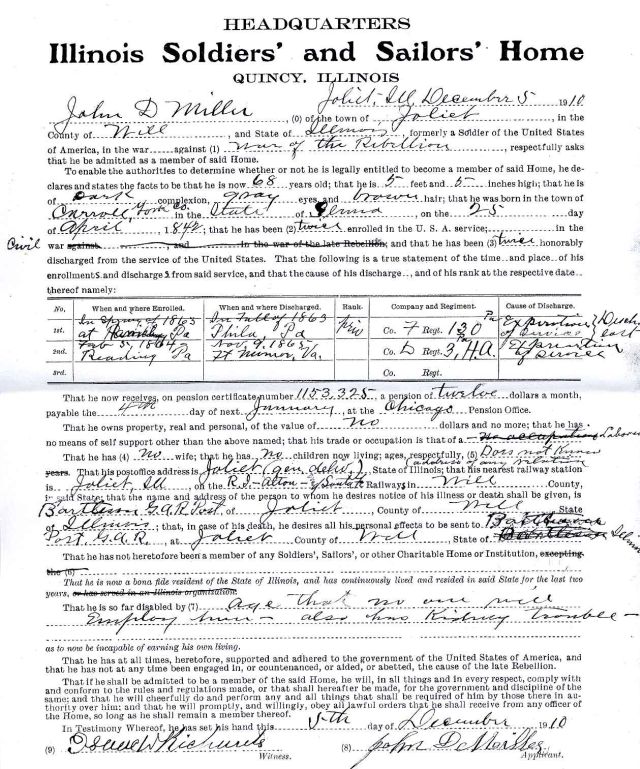 HEADQUARTERS
Illinois Soldiers' and Sailors' Home
QUINCY, ILLINOIS
Joliet, Ill December 5 1910
John D Miller (0) of the town of Joliet, in the
County of Will, and State of Illinois, formerly a Soldier of the United States
of America, in the war against (1) War of the Rebillion, respectfully asks
that he be admitted as a member of said Home.
To enable the authorities to determine whether or not he is legally entitled to become a member of said Home, he de-
clares and states the facts to be that he is now 68 years old; that he is 5 feet and 5 inches high; that he is
of Dark complexion, gray eyes, and brown hair; that he was born in the town of
Carroll York Co. in the State of Penna, on the 25 day
of April 1842; that he has been (2) twice enrolled in the U. S. A. service; in the
Civil war against, and in the war of the late Rebellion; and that he has been (3) twice honorably
discharged from the service of the United States. That the following is a true statement of the time and place of his
enrollments and discharges from said service, and that the cause of his discharge, and of his rank at the respective date
thereof namely:
No. When and where Enrolled. When and where Discharged. Rank. Company and Regiment. Cause of Discharge.
1st. In Spring of 1863 at Pa In Fall of 1863 Phila Pa Co. F Regt. 130 Pa Expiration of service
2nd. Feb 5, 1864 Reading Pa Nov. 9, 1865 Ft Monroe, Va. Co. D Regt. 3, H.A. Expiration of service
3rd. Co. Regt.
That he now receives, on pension certificate number 1153,325, a pension of twelve dollars a month,
payable the 4th day of next January, at the Chicago Pension Office.
That he owns property, real and personal, of the value of No dollars and no more; that he has
no means of self support other than the above named; that his trade or occupation is that of a No occupation Laborer
That he has (4) No wife; that he has No children now living; ages, respectively, (5) Does not know
years. (address of any relation)
That his postoffice address is Joliet (gen. delv.), State of Illinois; that his nearest railway station
is Joliet, Ill, on the R.I-Alton-& Santa Fe Railways in Will County,
in said State; that the name and address of the person to whom he desires notice of his illness or death shall be given, is
Bartleson G.A.R. Post, of Joliet, County of Will State
of Illinois; that, in case of his death, he desires all his personal effects to be sent to Bartleson
Post, G.A.R., at Joliet County of Will, State of Illinois
That he has not heretofore been a member of any Soldiers', Sailors', or other Charitable Home or Institution, excepting
the (6)
That he is now a bona fide resident of the State of Illinois, and has continuously lived and resided in said State for the last two
years, or has served in an Illinois organization.
That he is so far disabled by (7) age that no one will
Employ him - also has Kidney trouble -
as to now be incapable of earning his own living.
That he has at all times, heretofore, supported and adhered to the government of the United States of America, and
that he has not at any time been engaged in, or countenanced, or aided, or abetted, the cause of the late Rebellion.
That if he shall be admitted to be a member of the said Home, he will, in all things and in every respect, comply with
and conform to the rules and regulations made, or that shall hereafter be made, for the government and discipline of the
same; and that he will cheerfully do and perform any and all things that shall be required of him by those there in au-
thority over him; and that he will promptly, and willingly, obey all lawful orders that he shall receive from any officer of
the Home, so long as he shall remain a member thereof.
In Testimony Whereof, he has set his hand this 5th day of December 1910
(9) Richards (8) John D Miller
Witness. Applicant.